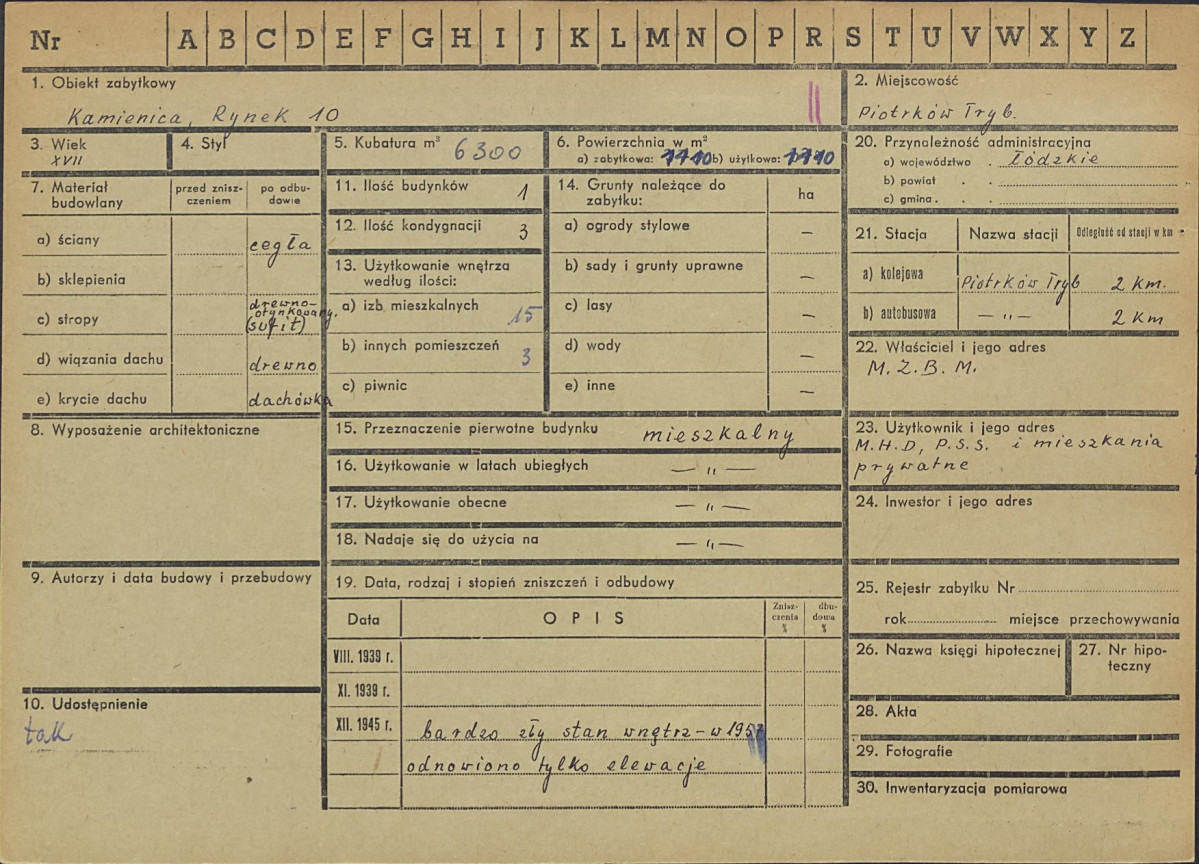 Nr A B C D E F G H I J K L M N O P R S T U V W X Y Z
1. Obiekt zabytkowy
Kamienica, Rynek 10
2. Miejscowość
Piotrków Tryb.
3. Wiek
XVII
4. Styl
5. Kubatura m³ 6300
6. Powierzchnia w m²
a) zabytkowa: 1110 b) użytkowa: 1110
7. Materiał budowlany
przed znisz-
czeniem
po odbu-
dowie
a) ściany cegła
b) sklepienia
c) stropy drewno-
otynkowany.
(sufit)
d) wiązania dachu drewno
e) krycie dachu dachówka
8. Wyposażenie architektoniczne
9. Autorzy i data budowy i przebudowy
10. Udostępnienie
tak
11. Ilość budynków 1
12. Ilość kondygnacji 3
13. Użytkowanie wnętrza
według ilości:
a) izb mieszkalnych 15
b) innych pomieszczeń 3
c) piwnic
14. Grunty należące do
zabytku:
ha
a) ogrody stylowe –
b) sady i grunty uprawne –
c) lasy –
d) wody –
e) inne –
15. Przeznaczenie pierwotne budynku mieszkalny
16. Użytkowanie w latach ubiegłych — " —
17. Użytkowanie obecne — " —
18. Nadaje się do użycia na — " —
19. Data, rodzaj i stopień zniszczeń i odbudowy
Data
OPIS
Znisz-
czenia
%
dbu-
dowa
%
VIII. 1939 r.
XI. 1939 r.
XII. 1945 r. bardzo zły stan wnętrz – w 1957
odnowiono tylko elewacje
20. Przynależność administracyjna
a) województwo . Łódzkie
b) powiat . .
c) gmina . .
21. Stacja
Nazwa stacji
Odległość od stacji w km
a) kolejowa Piotrków Tryb 2 km.
b) autobusowa — " — 2 km
22. Właściciel i jego adres
M. Z. B. M.
23. Użytkownik i jego adres
M.H.D, P.S.S. i mieszkania
prywatne
24. Inwestor i jego adres
25. Rejestr zabytku Nr
rok miejsce przechowywania
26. Nazwa księgi hipotecznej
27. Nr hipo-
teczny
28. Akta
29. Fotografie
30. Inwentaryzacja pomiarowa